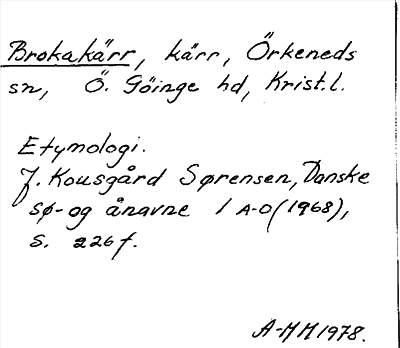 Brokakärr, kärr, Örkeneds
sn, Ö. Göinge hd, Krist.l.
Etymologi.
J. Kousgård Sørensen, Danske
sø- og ånavne 1 A-D (1968),
s. 226 f.
A-MM 1978.